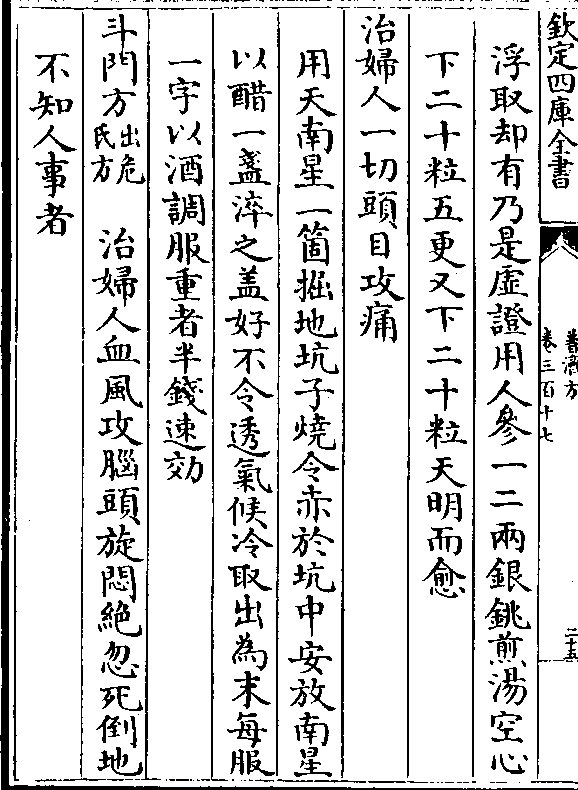 欽定四庫全書
普濟方
卷三百十七
二十五
浮取却有乃是虛證用人參一二兩銀銚煎湯空心
下二十粒五更又下二十粒天明而愈
治婦人一切頭目攻痛
用天南星一箇掘地坑子燒令赤於坑中安放南星
以醋一盞淬之盖好不令透氣候冷取出為末每服
一字以酒調服重者半錢速効
斗門方出危氏方 治婦人血風攻腦頭旋悶絶忽死倒地
不知人事者